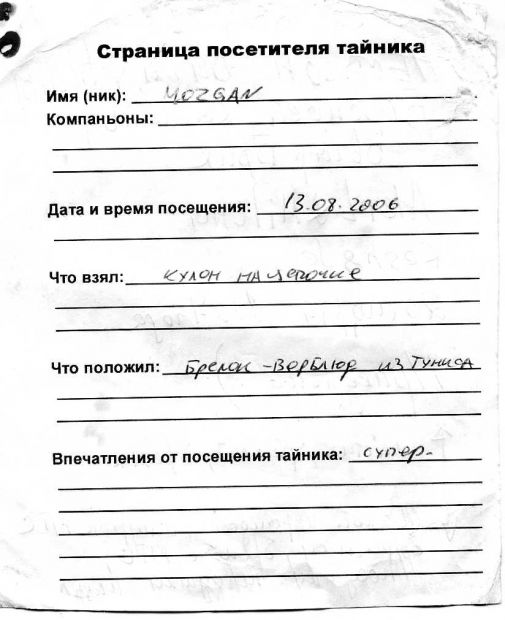 Страница посетителя тайника
Имя (ник): MOZGAN
Компаньоны:
Дата и время посещения: 13.08.2006
Что взял: кулон на цепочке
Что положил: Брелок-Верблюд из Туниса
Впечатления от посещения тайника: супер.